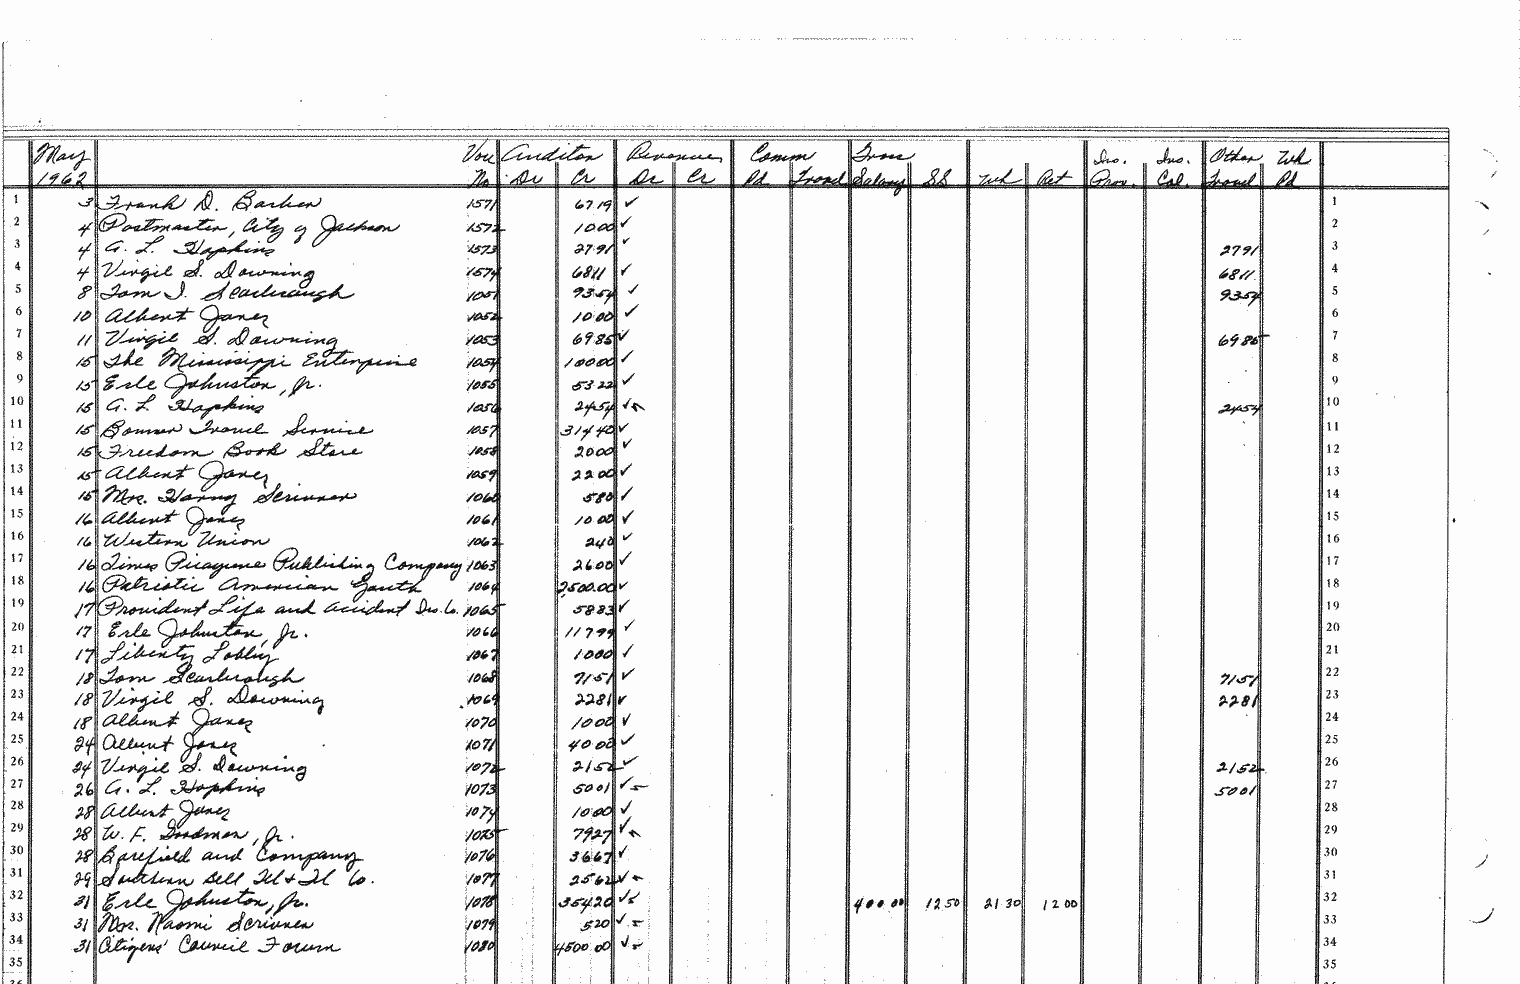 May Vou Auditor Revenue Comm Gross Ins. Ins. Other Wh
1962 No Dr Cr Dr Cr Pd. Travel Salary SS Wh Ret Prov. Col. Travel Pd
1 3 Frank D. Barber 1571 67.19 ✓ 1
2 4 Postmaster, City of Jackson 1572 10 00 ✓ 2
3 4 A. L. Hopkins 1573 27 91 ✓ 27 91 3
4 4 Virgil S. Downing 1574 68 11 ✓ 68 11 4
5 8 Tom J. Scarbrough 1051 93 54 ✓ 93 54 5
6 10 Albert Jones 1052 10 00 ✓ 6
7 11 Virgil S. Downing 1053 69 85 ✓ 69 85 7
8 15 The Mississippi Enterprise 1054 100 00 ✓ 8
9 15 Erle Johnston, Jr. 1055 53 22 ✓ 9
10 15 A. L. Hopkins 1056 24 54 ✓ 24 54 10
11 15 Bonner Travel Service 1057 314 40 ✓ 11
12 15 Freedom Book Store 1058 20 00 ✓ 12
13 15 Albert Jones 1059 22 00 ✓ 13
14 15 Mrs. Harry Scrivner 1060 5 80 ✓ 14
15 16 Albert Jones 1061 10 00 ✓ 15
16 16 Western Union 1062 2 40 ✓ 16
17 16 Times Picayune Publishing Company 1063 26 00 ✓ 17
18 16 Patriotic American Youth 1064 2,500.00 ✓ 18
19 17 Provident Life and Accident Ins. Co. 1065 58 83 ✓ 19
20 17 Erle Johnston, Jr. 1066 117 99 ✓ 20
21 17 Liberty Lobby 1067 10 00 ✓ 21
22 18 Tom Scarbrough 1068 71 51 ✓ 71 51 22
23 18 Virgil S. Downing 1069 22 81 ✓ 22 81 23
24 18 Albert Jones 1070 10 00 ✓ 24
25 24 Albert Jones 1071 40 00 ✓ 25
26 24 Virgil S. Downing 1072 21 52 ✓ 21 52 26
27 26 A. L. Hopkins 1073 50 01 ✓ 50 01 27
28 28 Albert Jones 1074 10 00 ✓ 28
29 28 W. F. Goodman, Jr. 1075 79 27 ✓ 29
30 28 Barefield and Company 1076 36 67 ✓ 30
31 29 Southern Bell Tel & Tel Co. 1077 25 62 ✓ 31
32 31 Erle Johnston, Jr. 1078 354 20 ✓ 400 00 12 50 21 30 12 00 32
33 31 Mrs. Naomi Scrivner 1079 5 20 ✓ 33
34 31 Citizens' Council Forum 1080 4500 00 ✓ 34
35 35